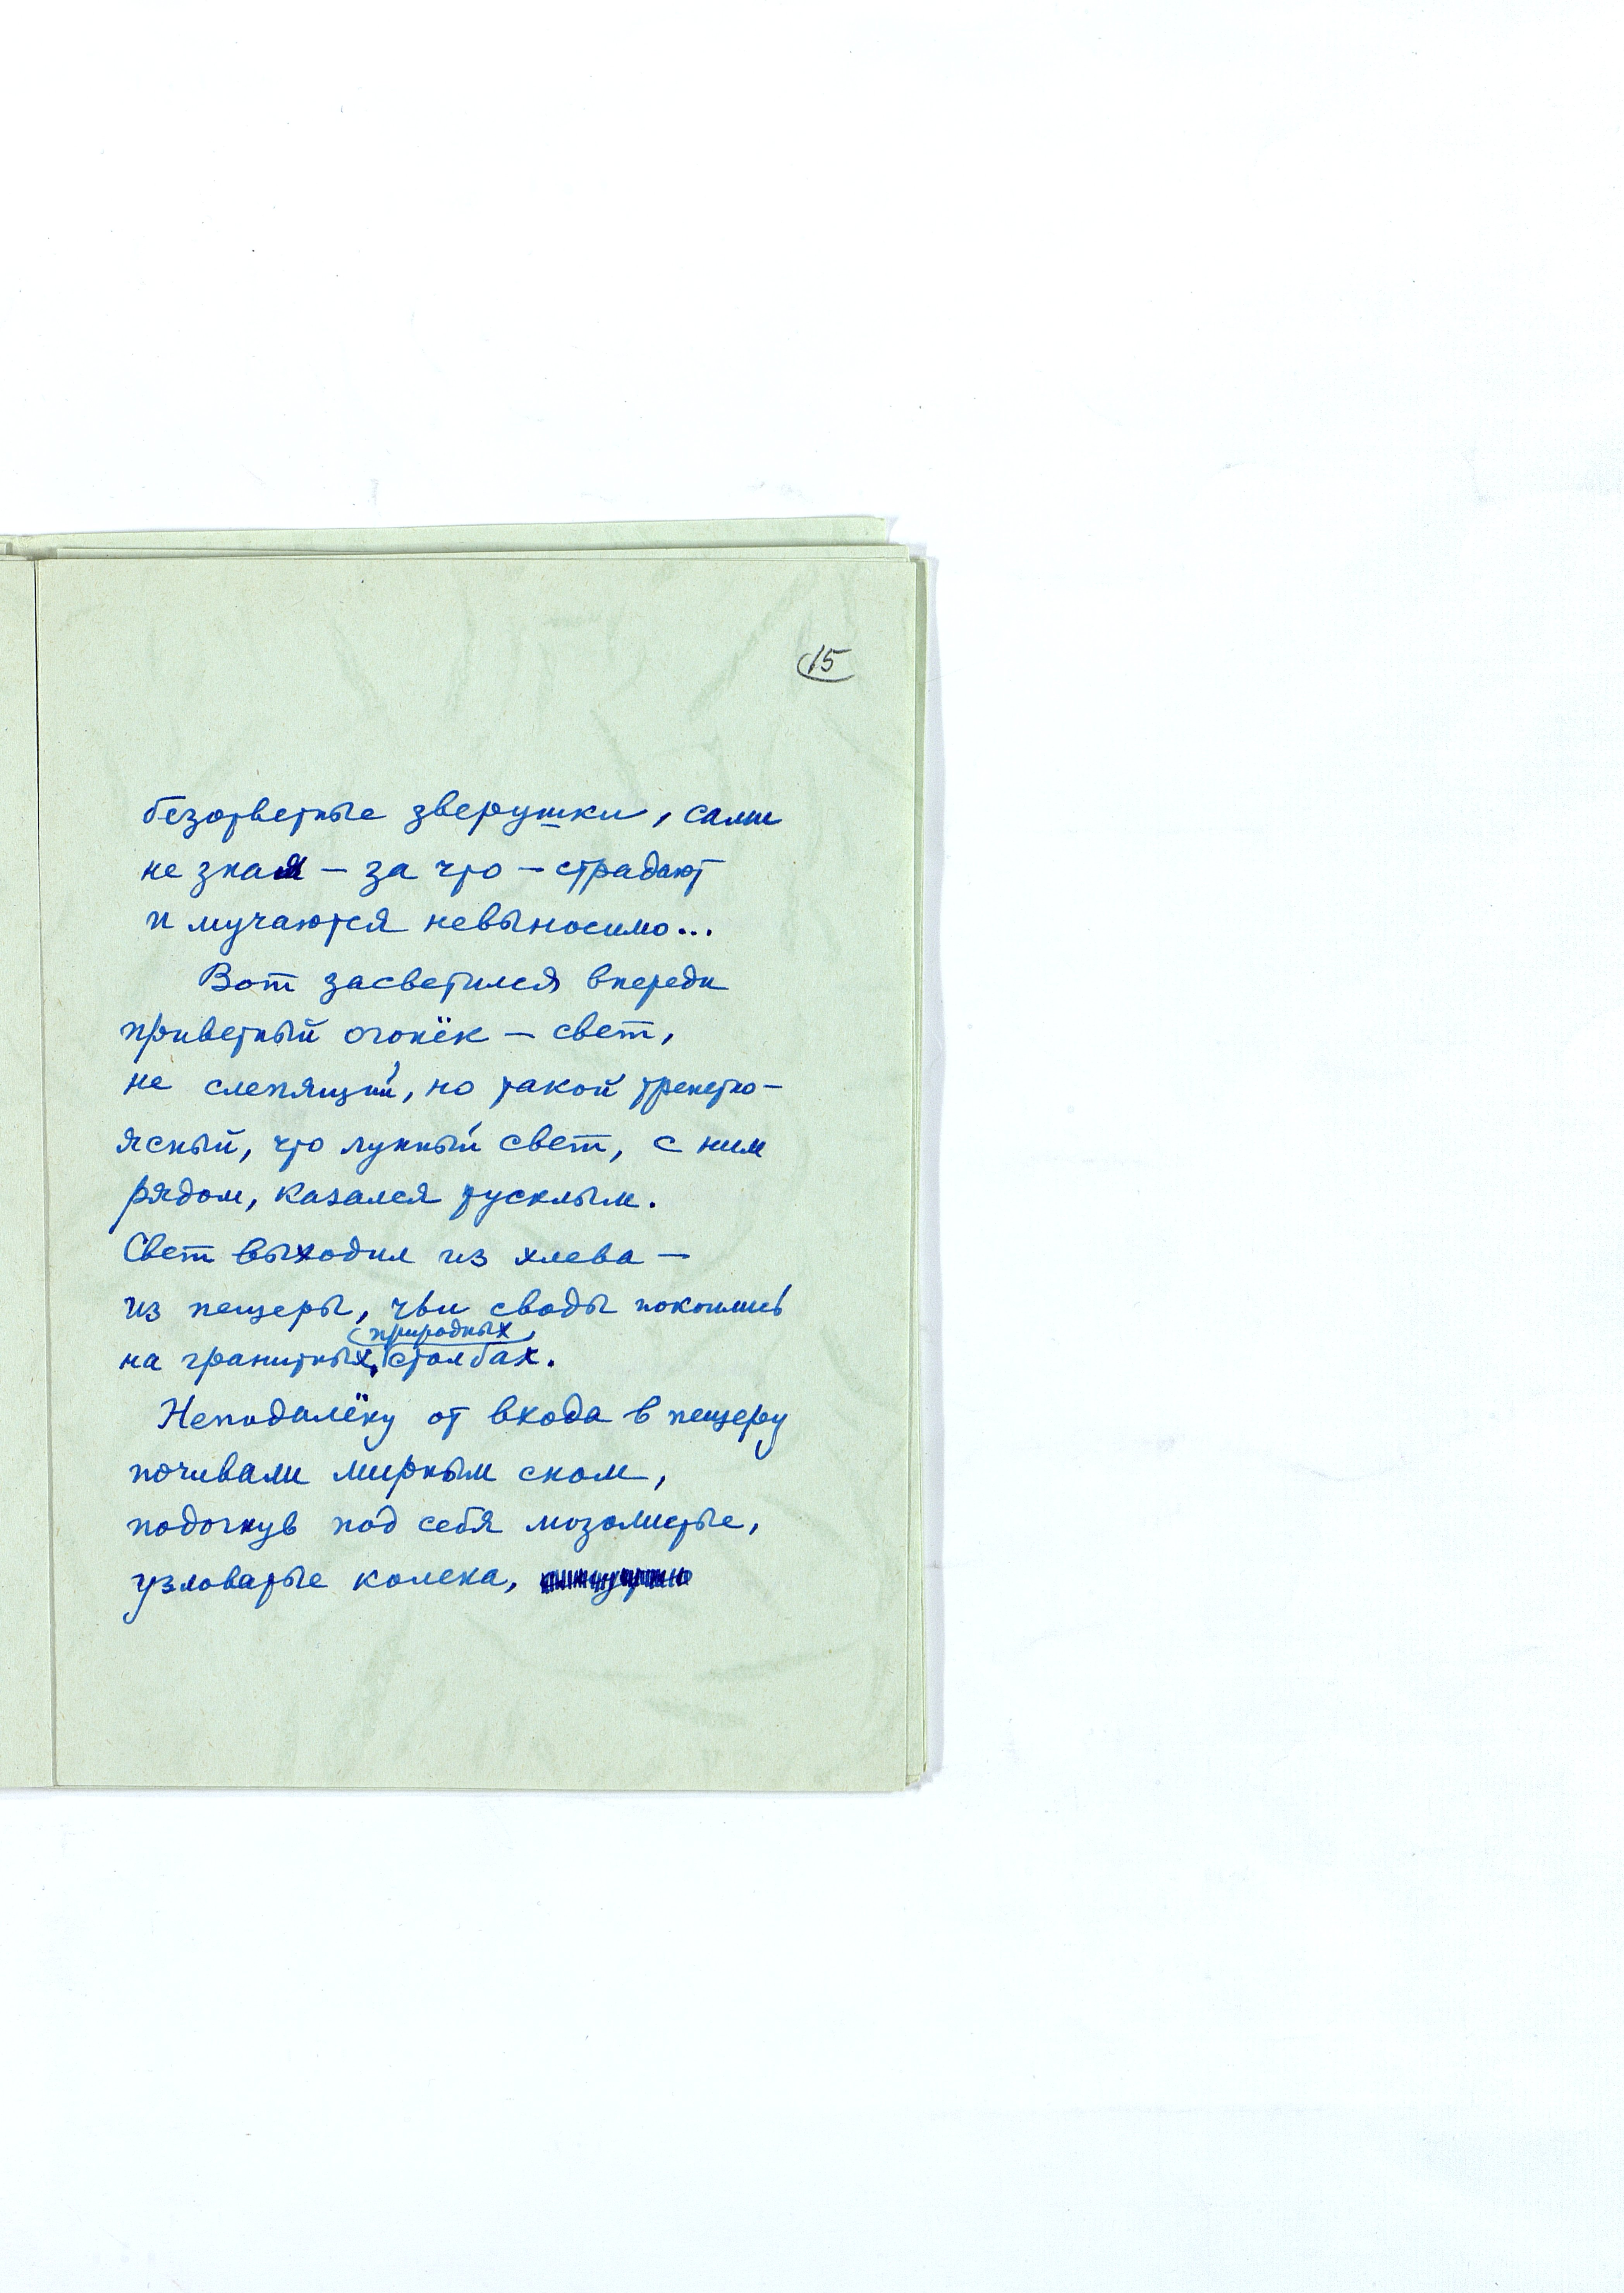 15
безответные зверушки, сами
не зная — за что — страдают
и мучаются невыносимо...
Вот засветился впереди
приветный огонёк — свет,
не слепящий, но такой трепетно-
ясный, что лунный свет, с ним
рядом, казался тусклым.
Свет выходил из хлева —
из пещеры, чьи своды покоились
природных
на гранитных, столбах.
Неподалёку от входа в пещеру
почивали мирным сном,
подогнув под себя мозолистые,
узловатые колена,